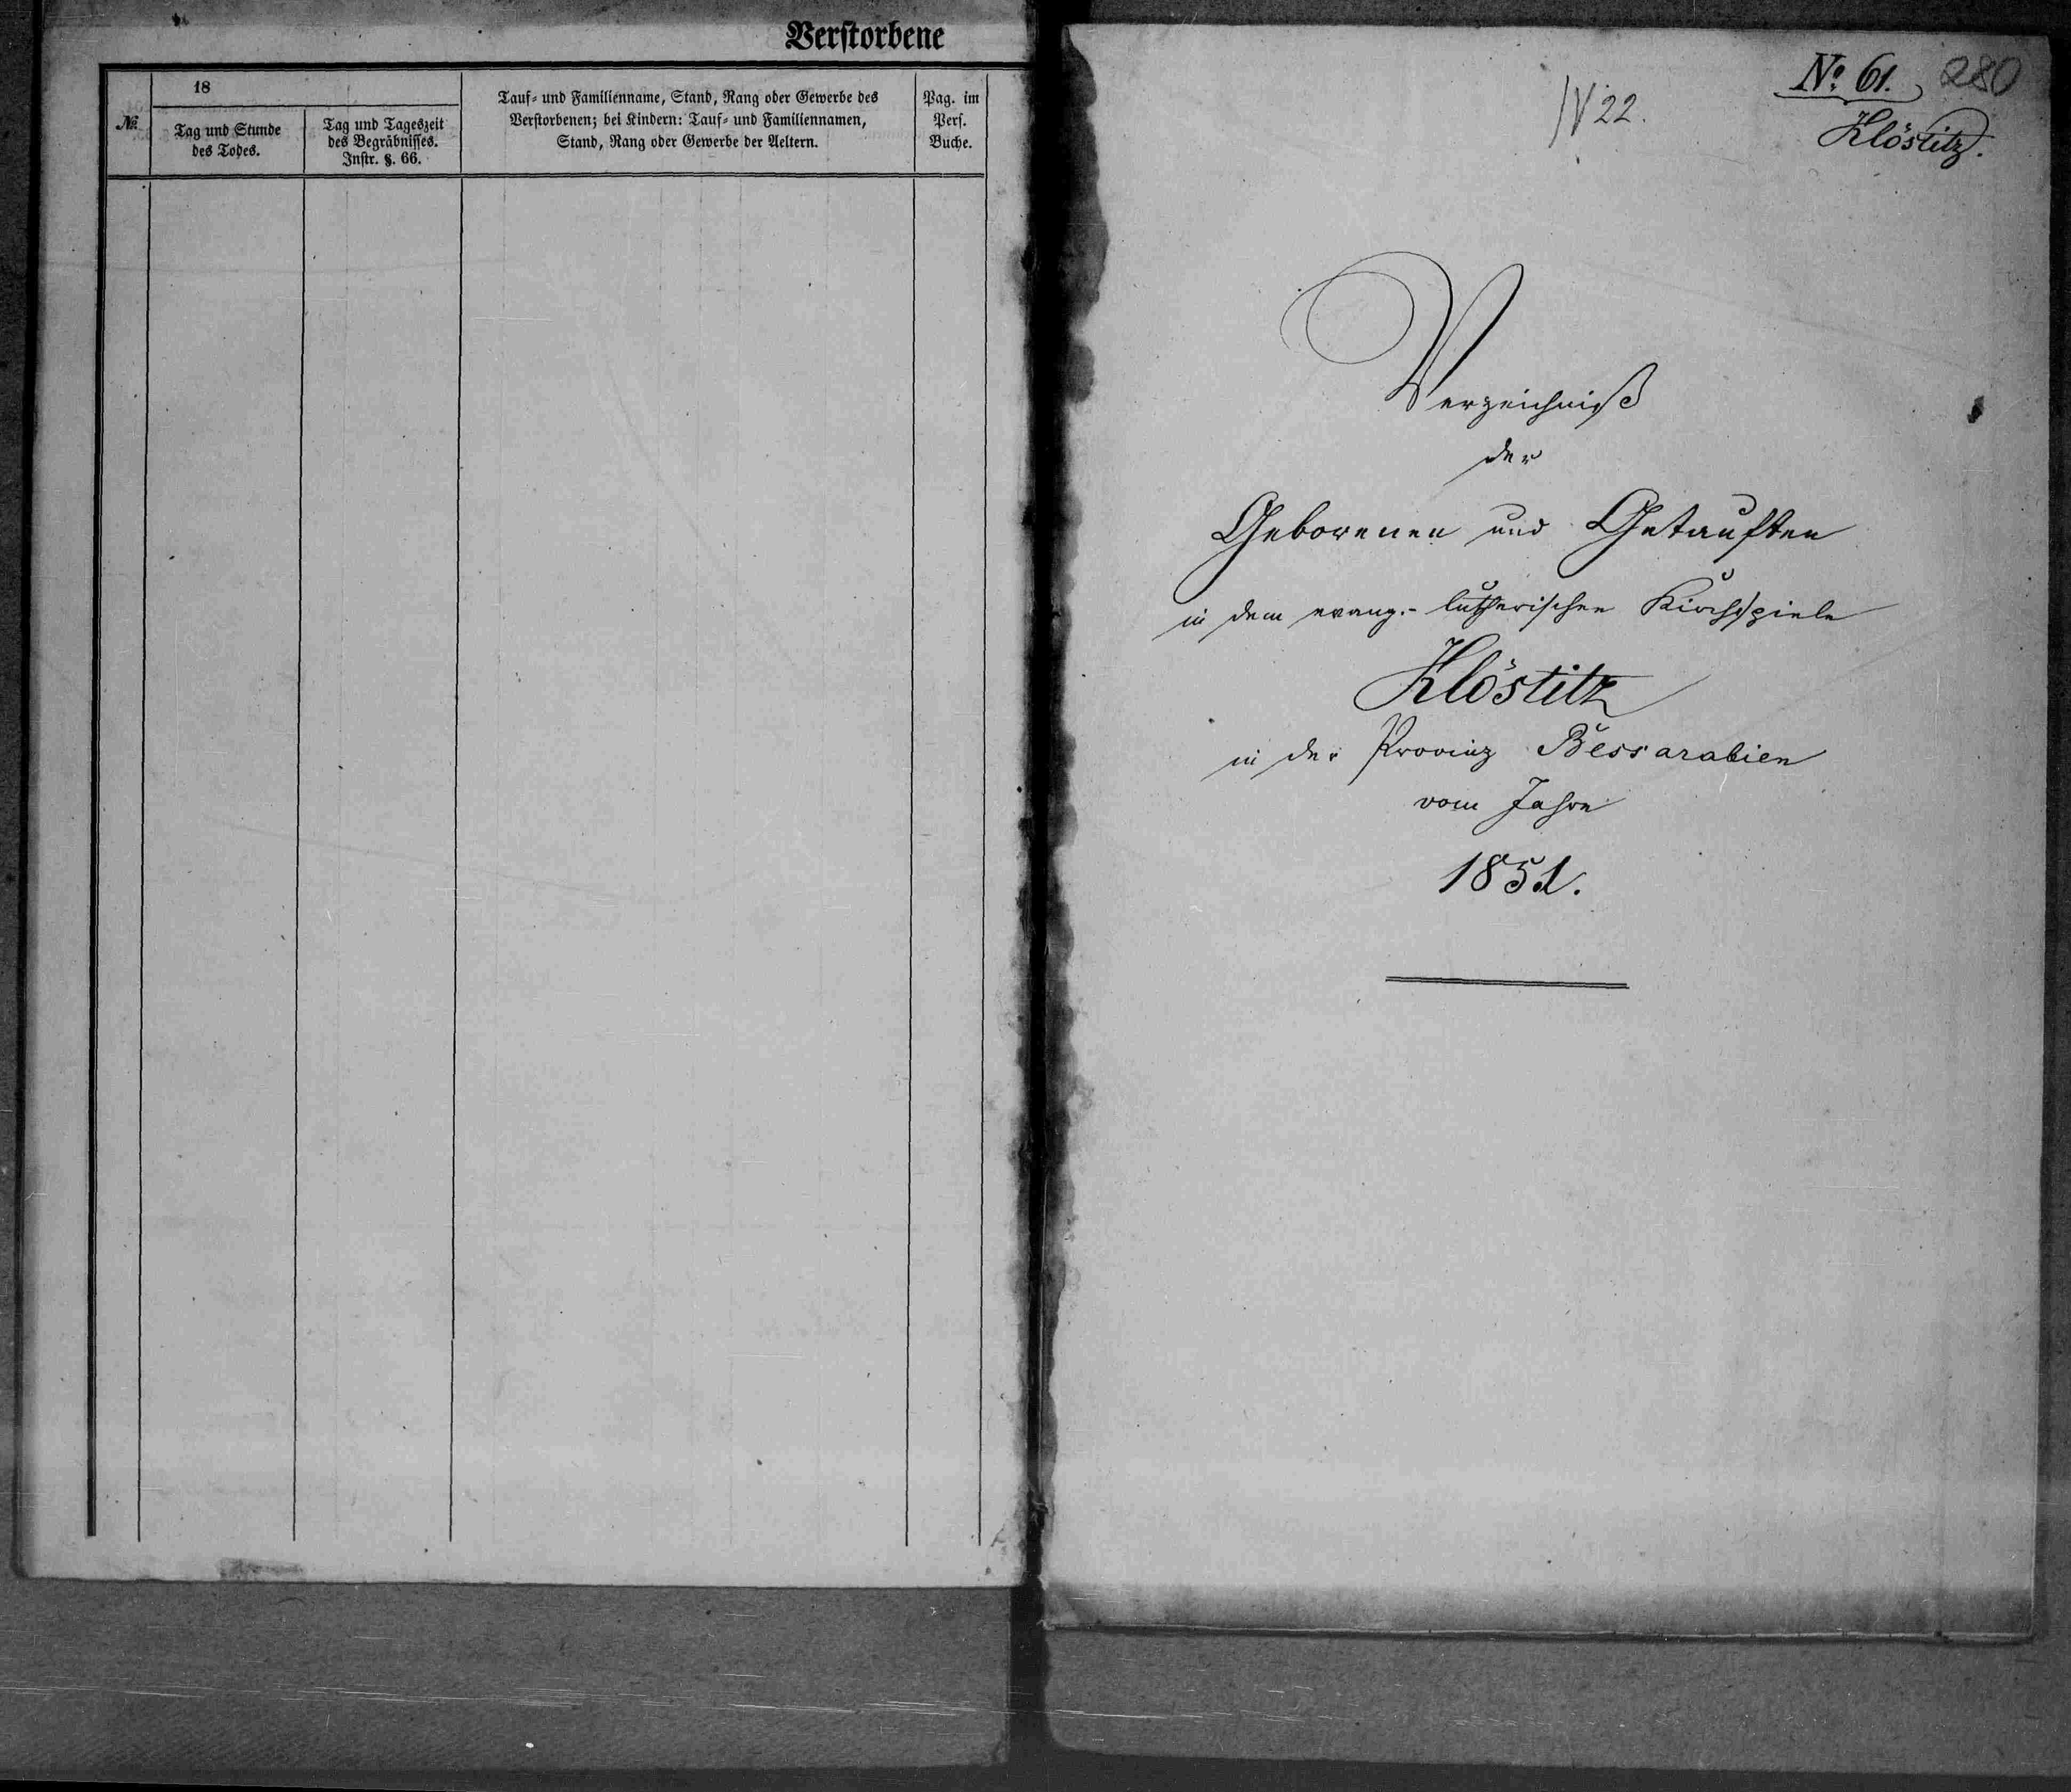 Verstorbene
№
18
Tag und Stunde
des Todes.
Tag und Tageszeit
des Begräbnisses.
Instr. §. 66.
Tauf- und Familienname, Stand, Rang oder Gewerbe des
Verstorbenen; bei Kindern: Tauf- und Familiennamen,
Stand, Rang oder Gewerbe der Aeltern.
Pag. im
Pers.
Buche.
IV 22.
№ 61. 280
Klöstitz.
Verzeichniß
der
Geborenen und Getauften
in dem evang.- lutherischen Kirchspiele
Klöstitz
in der Provinz Bessarabien
vom Jahre
1851.